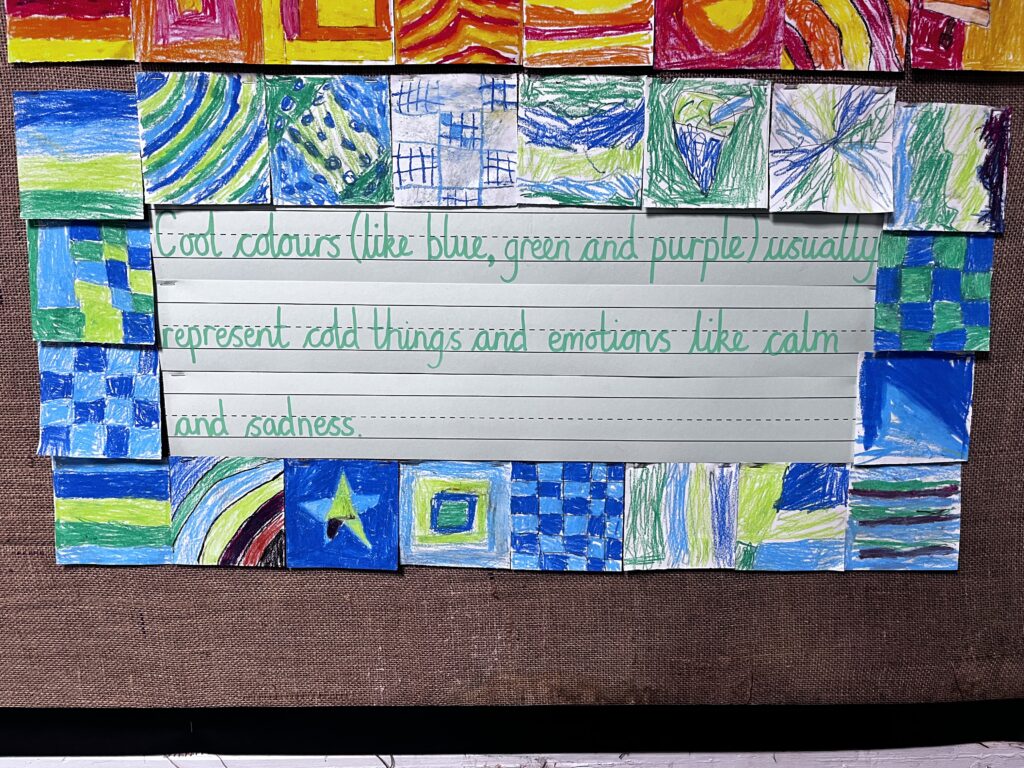 Cool colours (like blue, green and purple) usually
represent cold things and emotions like calm
and sadness.